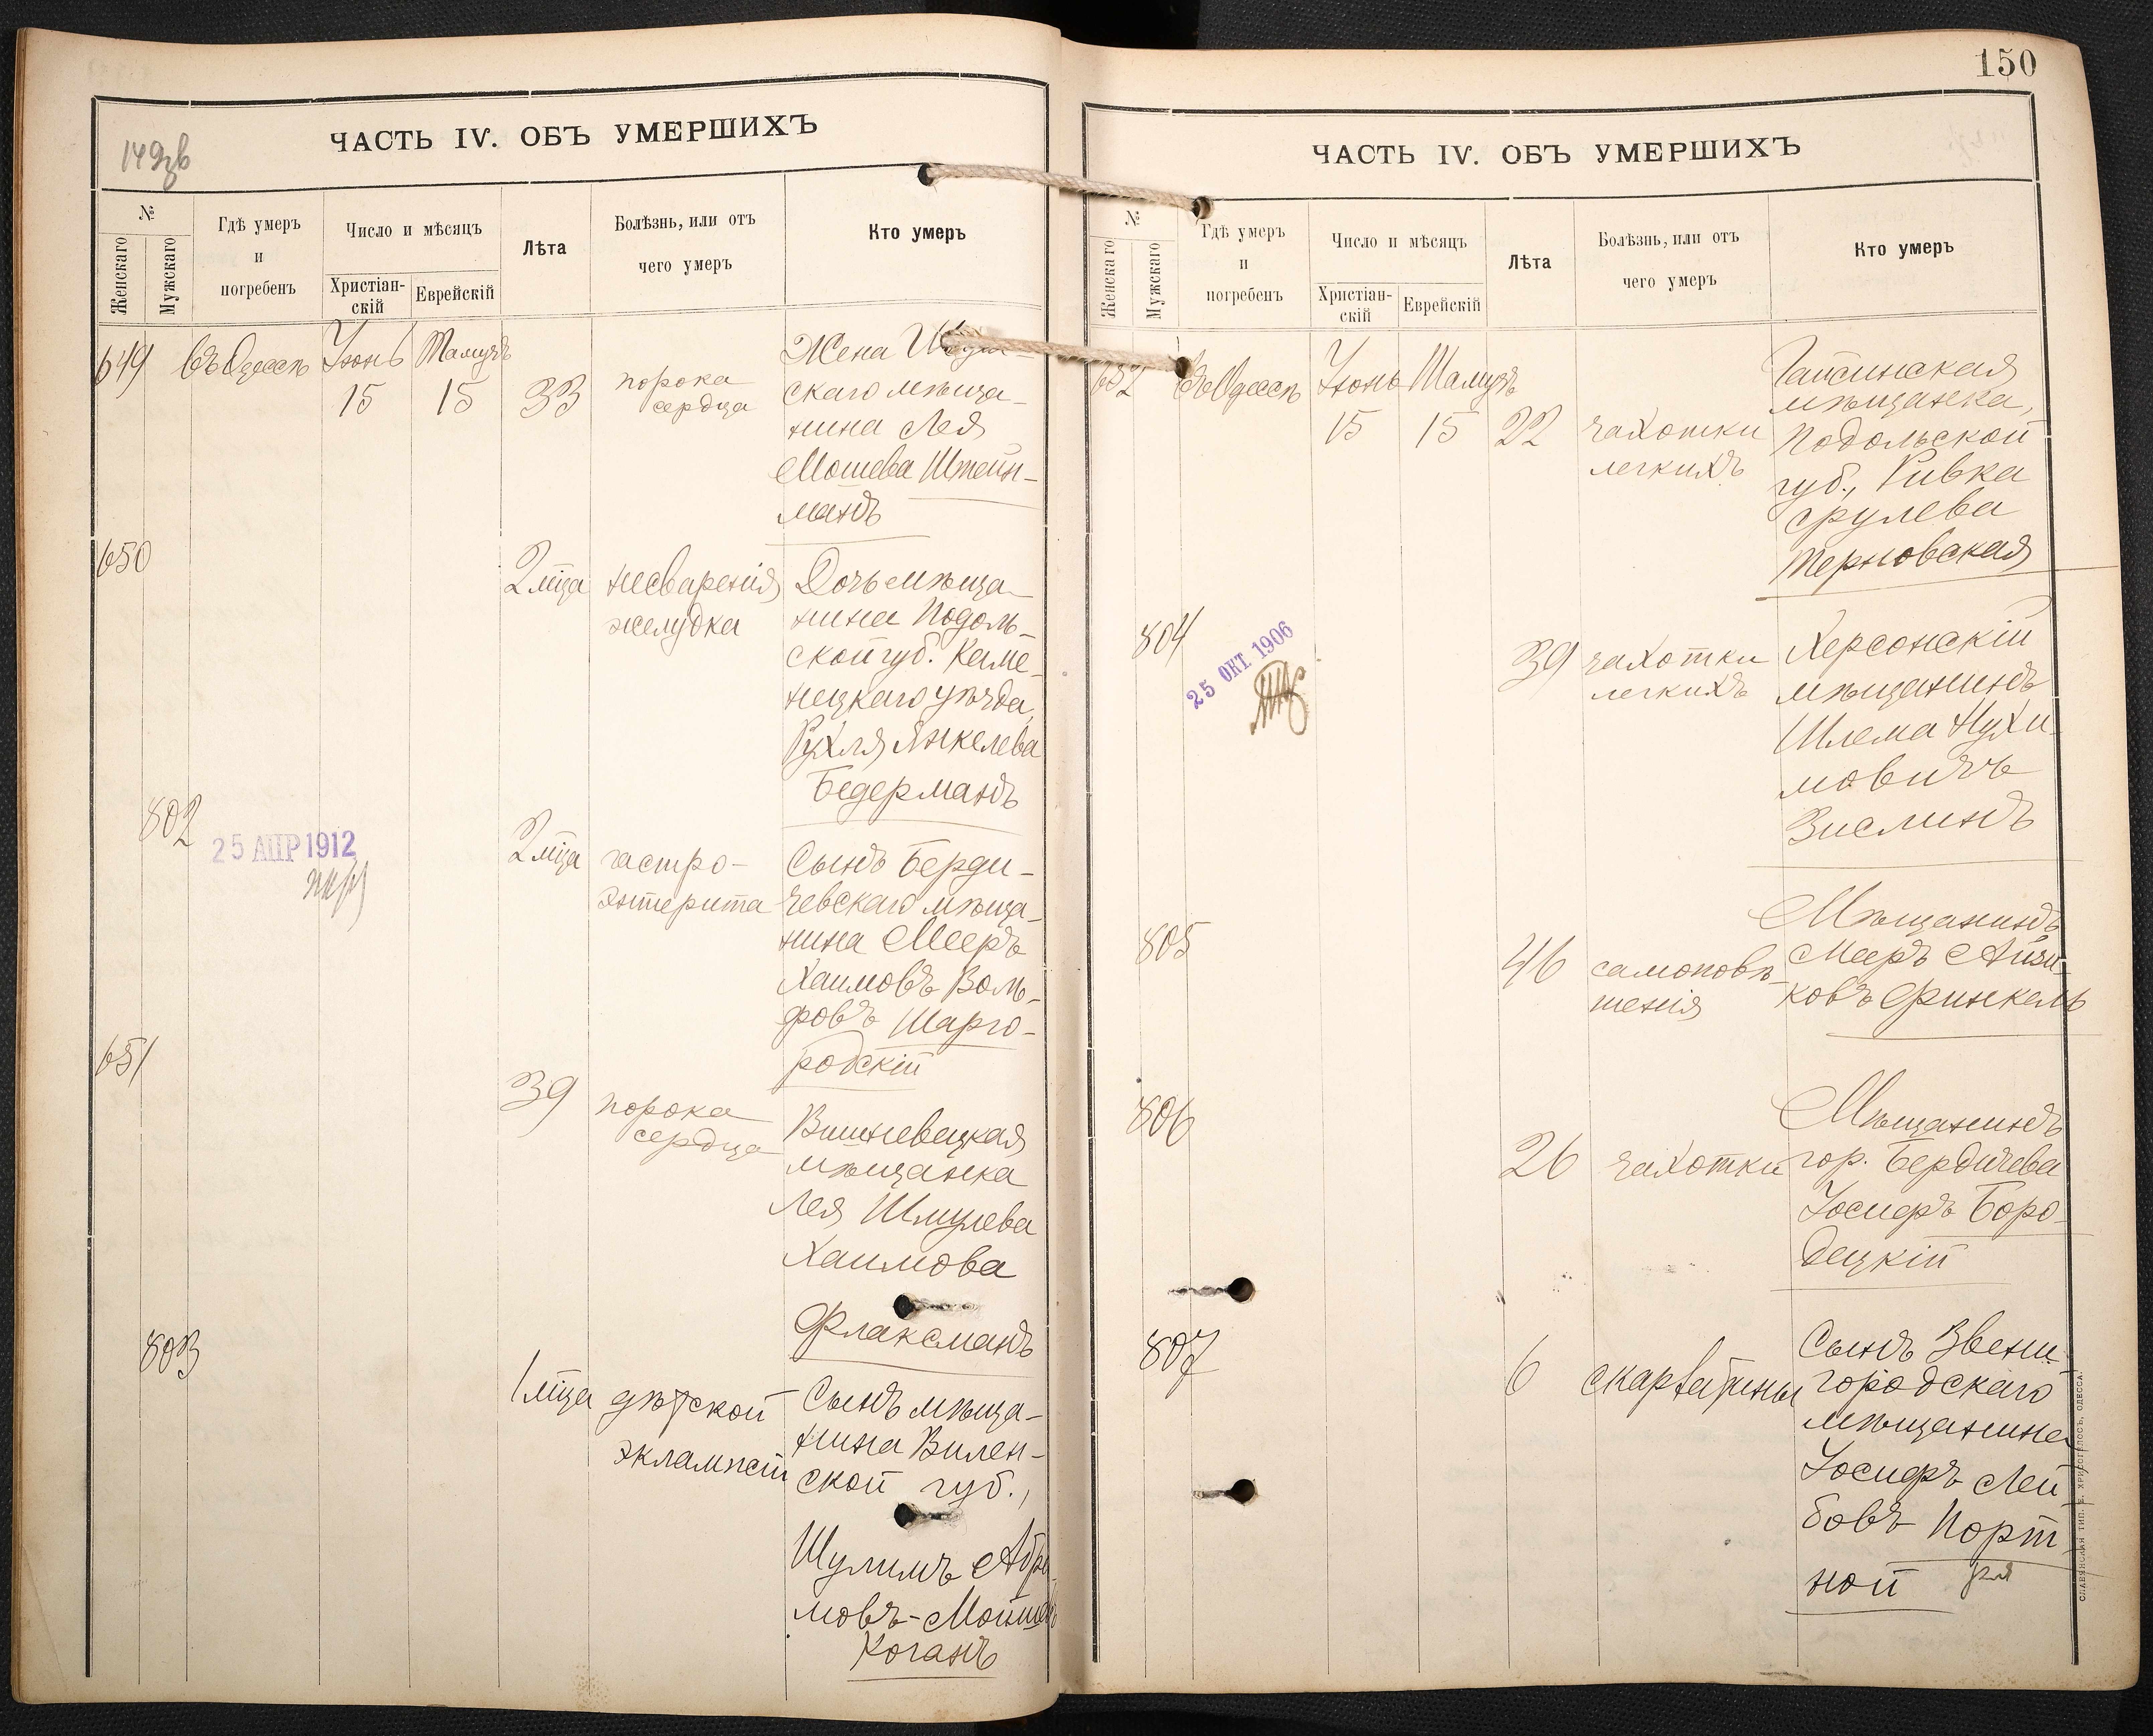 ЧАСТЬ IV. ОБЪ УМЕРШИХЪ
№
Женскаго
Мужскаго
Гдѣ умеръ
и
погребенъ
Число и мѣсяцъ
Христіан-
скій
Еврейскій
Лѣта
Болѣзнь, или отъ
чего умеръ
Кто умеръ
649
въ Одессѣ
Іюнь
15
Тамузъ
15
33
порока
сердца
Жена
скаго мѣща-
нина Лея
Мошева Штейн-
манъ
650
2 мѣца
несваренія
желудка
Дочь мѣща-
нина Подоль-
ской губ. Каме-
нецкаго уѣзда,
Рухля Янкелева
Бедерманъ
802
25 АПР 1912
2 мѣца
гастро-
энтерита
Сынъ Берди-
чевскаго мѣща-
нина Мееръ
Хаимовъ Воль-
фовъ Шарго-
родскій
651
39
порока
сердца
Вишневецкая
мѣщанка
Лея Шмулева
Хаимова
Флаксманъ
803
1 мѣца
дѣтской
эклампсіи
Сынъ мѣща-
нина Вилен-
ской губ.,
Шулимъ Абра-
мовъ-Мошковъ
Коганъ
150
ЧАСТЬ IV. ОБЪ УМЕРШИХЪ
№
Женскаго
Мужскаго
Гдѣ умеръ
и
погребенъ
Число и мѣсяцъ
Христіан-
скій
Еврейскій
Лѣта
Болѣзнь, или отъ
чего умеръ
Кто умеръ
652
въ Одессѣ
Іюнь
15
Тамузъ
15
22
чахотки
легкихъ
Гайсинская
мѣщанка,
Подольской
губ., Ривка
Срулева
Терновская
804
25 ОКТ 1906
39
чахотки
легкихъ
Херсонскій
мѣщанинъ
Шлема Нухи-
мовичъ
Зислинъ
805
46
самоповѣ-
шенія
Мѣщанинъ
Мееръ Айзи-
ковъ Финкель
806
26
чахотки
Мѣщанинъ
гор. Бердичева
Іосифъ Боро-
децкій
807
6
скарлатины
Сынъ Звени-
городскаго
мѣщанина
Іосифъ Лей-
бовъ Порт-
ной
СЛАВЯНСКАЯ ТИП. Е. ХРИСОГЕЛОСЪ, ОДЕССА.